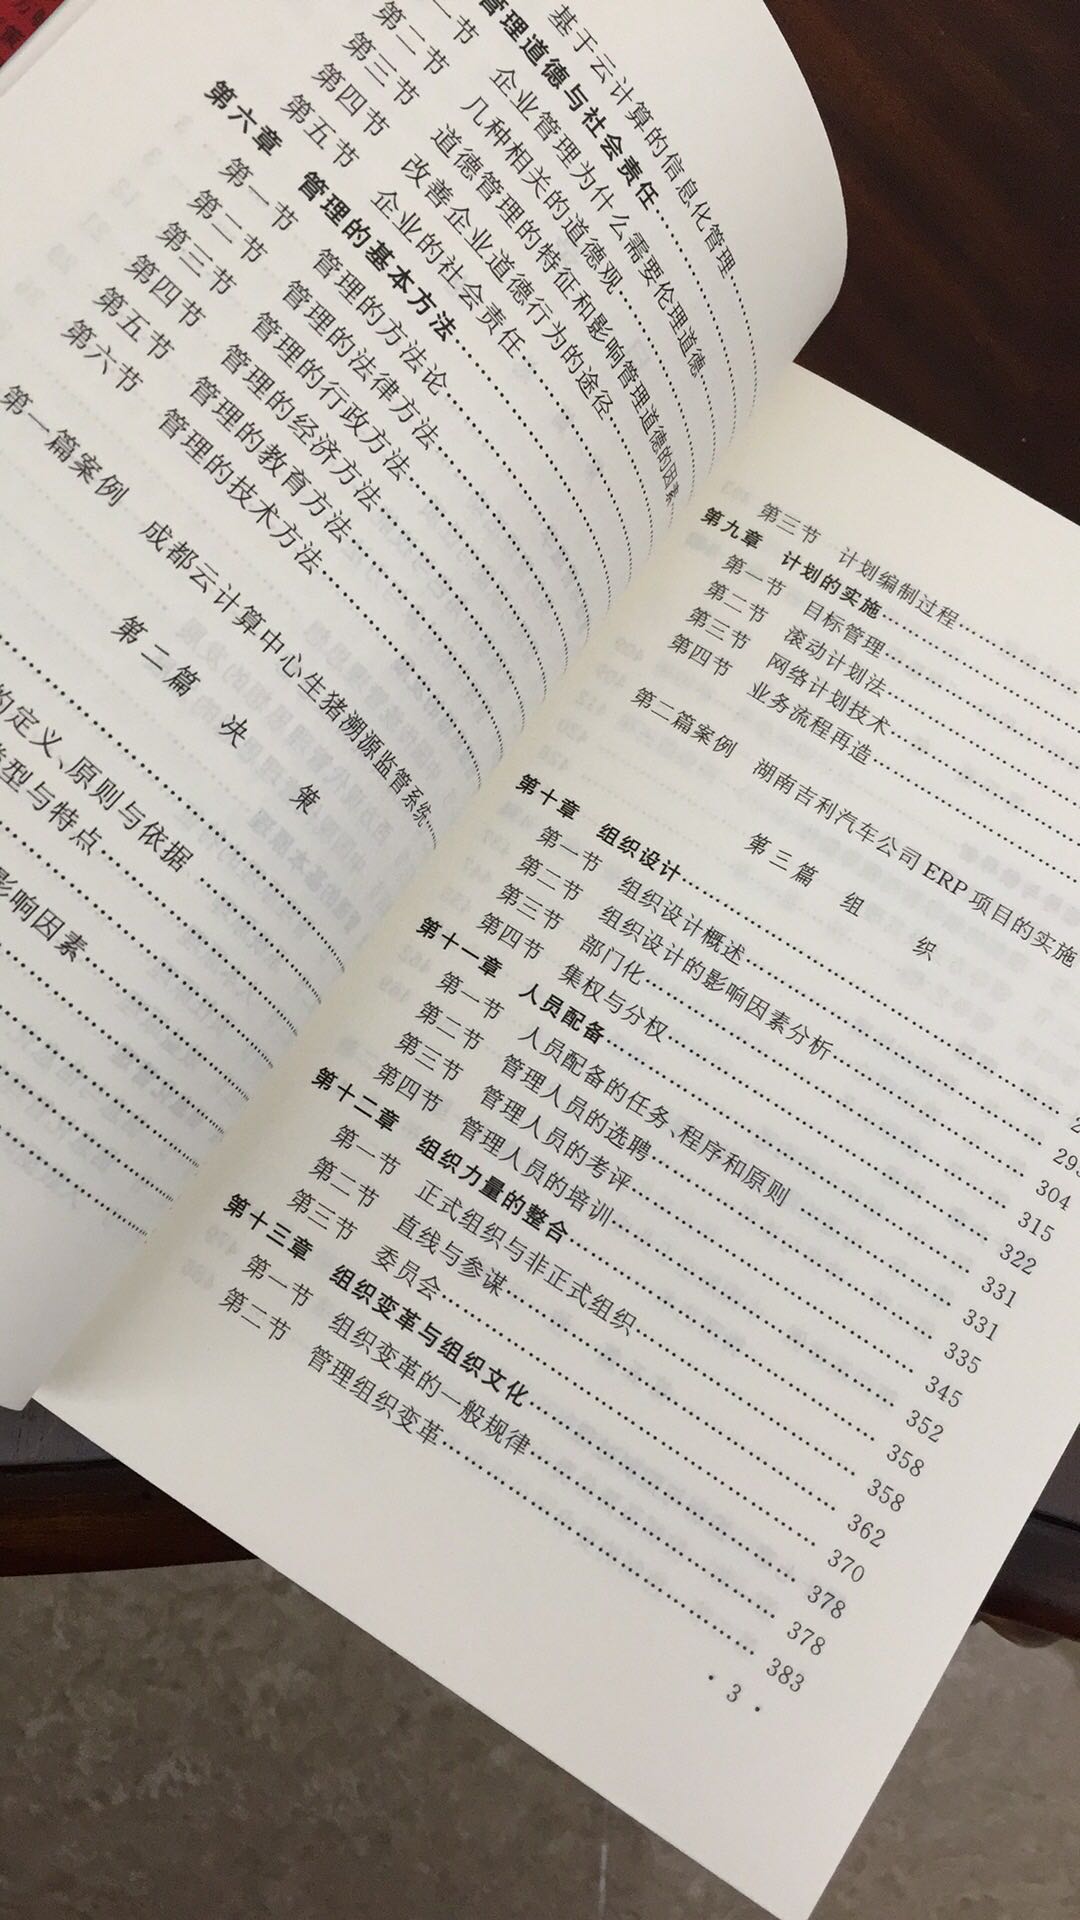 基于云计算的信息化管理
管理道德与社会责任
一节 企业管理为什么需要伦理道德
第二节 几种相关的道德观
第三节 道德管理的特征和影响管理道德的因素
第四节 改善企业道德行为的途径
第五节 企业的社会责任
第六章 管理的基本方法
第一节 管理的方法论
第二节 管理的法律方法
第三节 管理的行政方法
第四节 管理的经济方法
第五节 管理的教育方法
第六节 管理的技术方法
第一篇案例 成都云计算中心生猪溯源监管系统
第二篇 决 策
的定义、原则与依据
类型与特点
影响因素
第三节 计划编制过程
第九章 计划的实施
第一节 目标管理
第二节 滚动计划法
第三节 网络计划技术
第四节 业务流程再造
第二篇案例 湖南吉利汽车公司ERP项目的实施
第三篇 组 织
第十章 组织设计
第一节 组织设计概述
第二节 组织设计的影响因素分析 304
第三节 部门化 315
第四节 集权与分权 322
第十一章 人员配备 331
第一节 人员配备的任务、程序和原则 331
第二节 管理人员的选聘 335
第三节 管理人员的考评 345
第四节 管理人员的培训 352
第十二章 组织力量的整合 358
第一节 正式组织与非正式组织 358
第二节 直线与参谋 362
第三节 委员会 370
第十三章 组织变革与组织文化 378
第一节 组织变革的一般规律 378
第二节 管理组织变革 383
· 3 ·